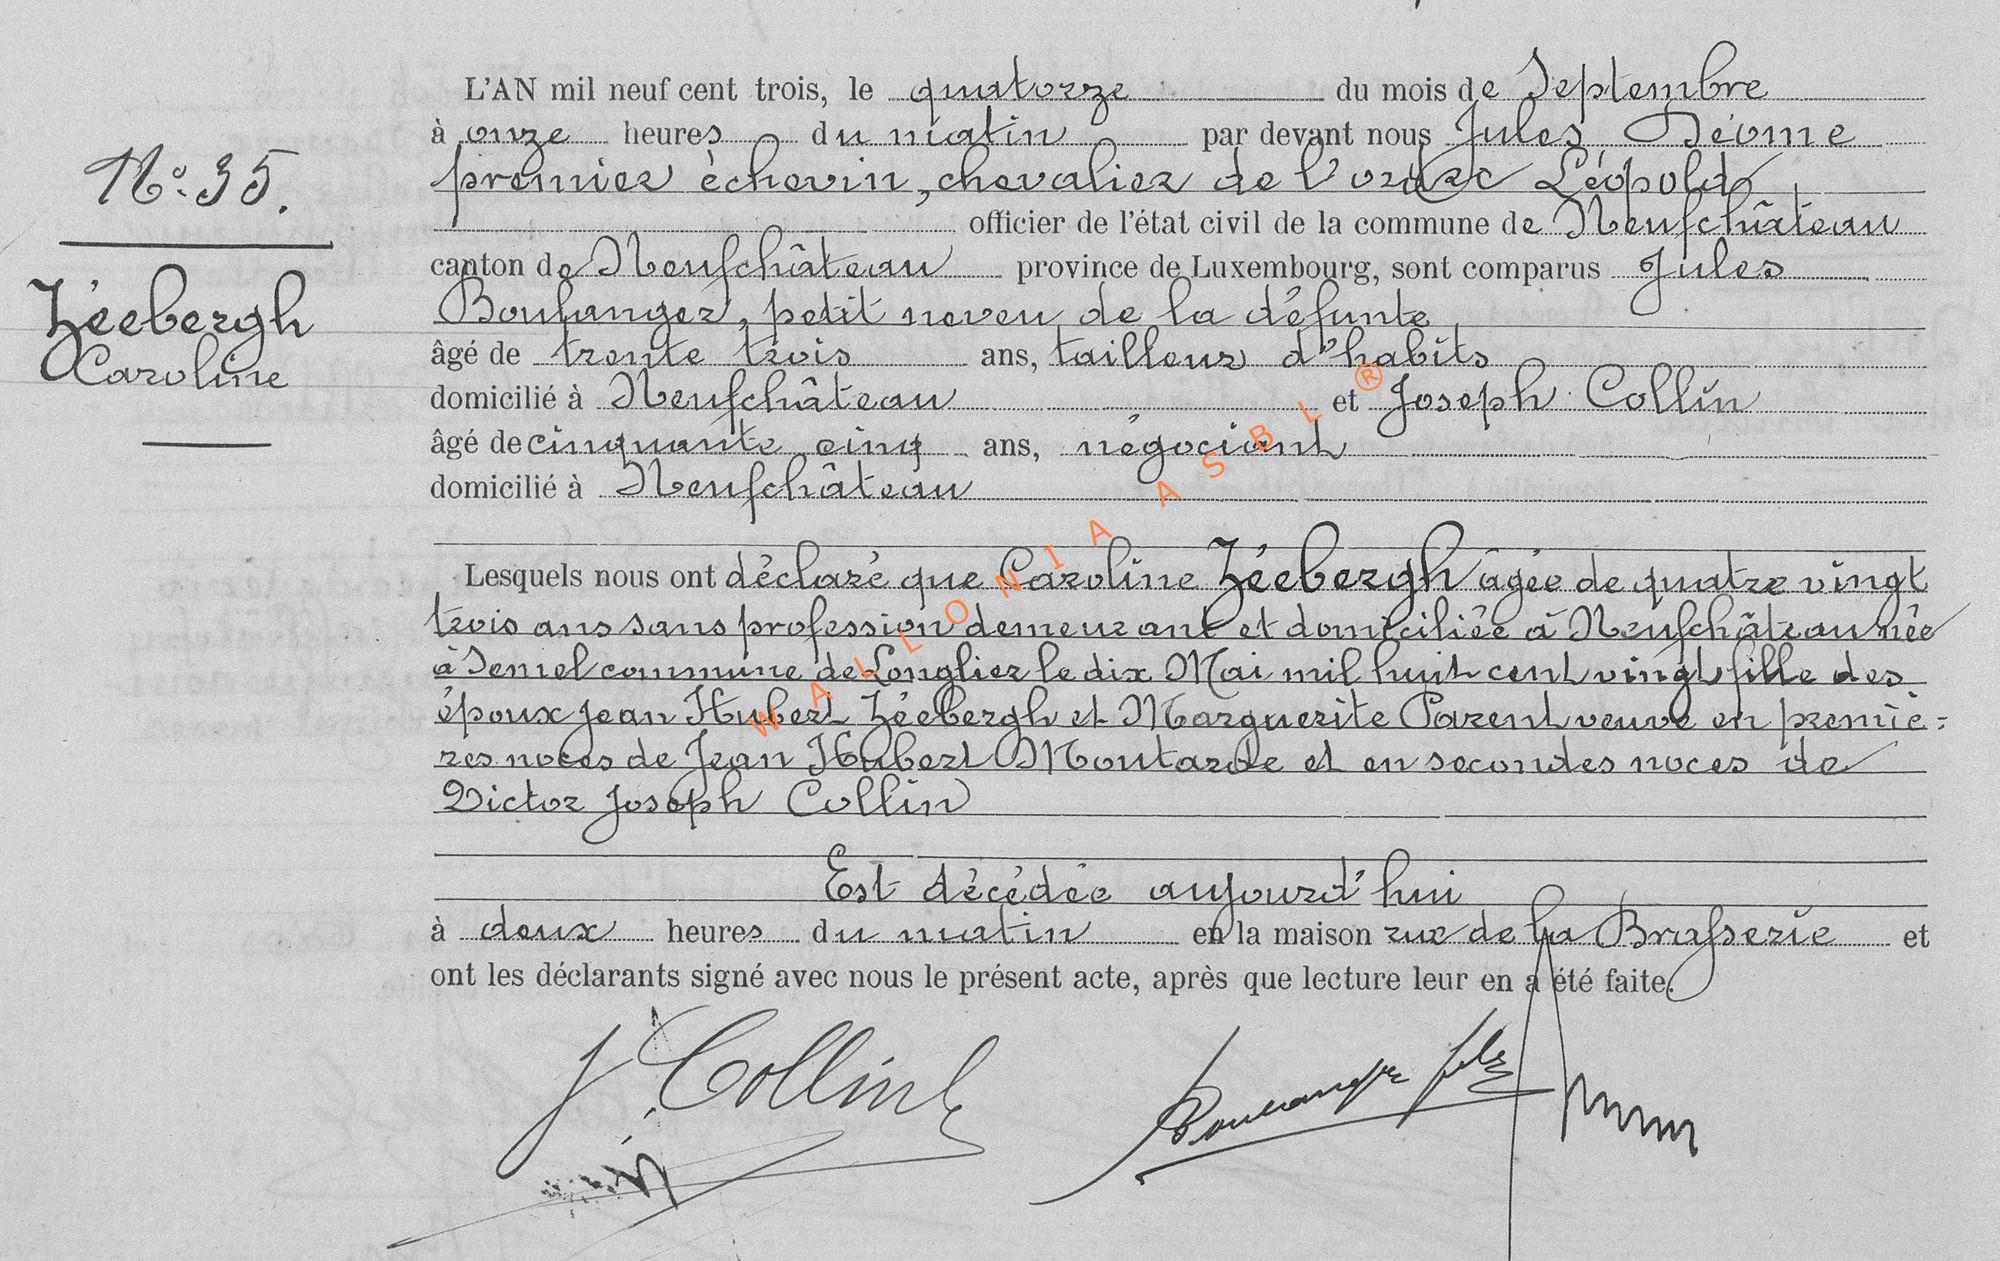 N° 35.
Zéebergh
Caroline
L'AN mil neuf cent trois, le quatorze du mois de Septembre
à onze heures du matin par devant nous Jules Déome
premier échevin, chevalier de l'ordre Léopold
officier de l'état civil de la commune de Neufchâteau
canton de Neufchâteau province de Luxembourg, sont comparus Jules
Boulanger, petit neveu de la défunte
âgé de trente trois ans, tailleur d'habits
domicilié à Neufchâteau et Joseph Collin
âgé de cinquante cinq ans, négociant
domicilié à Neufchâteau
Lesquels nous ont déclaré que Caroline Zéebergh âgée de quatre vingt
trois ans sans profession demeurant et domiciliée à Neufchâteau née
à Semel commune de Longlier le dix Mai mil huit cent vingt fille des
époux Jean Hubert Zéebergh et Marguerite Parent veuve en premiè=
res noces de Jean Hubert Moutarde et en secondes noces de
Victor Joseph Collin
Est décédée aujourd'hui
à deux heures du matin en la maison rue de la Brasserie et
ont les déclarants signé avec nous le présent acte, après que lecture leur en a été faite.
J. Collin
Boulanger fils
WALLONIA ASBL ®